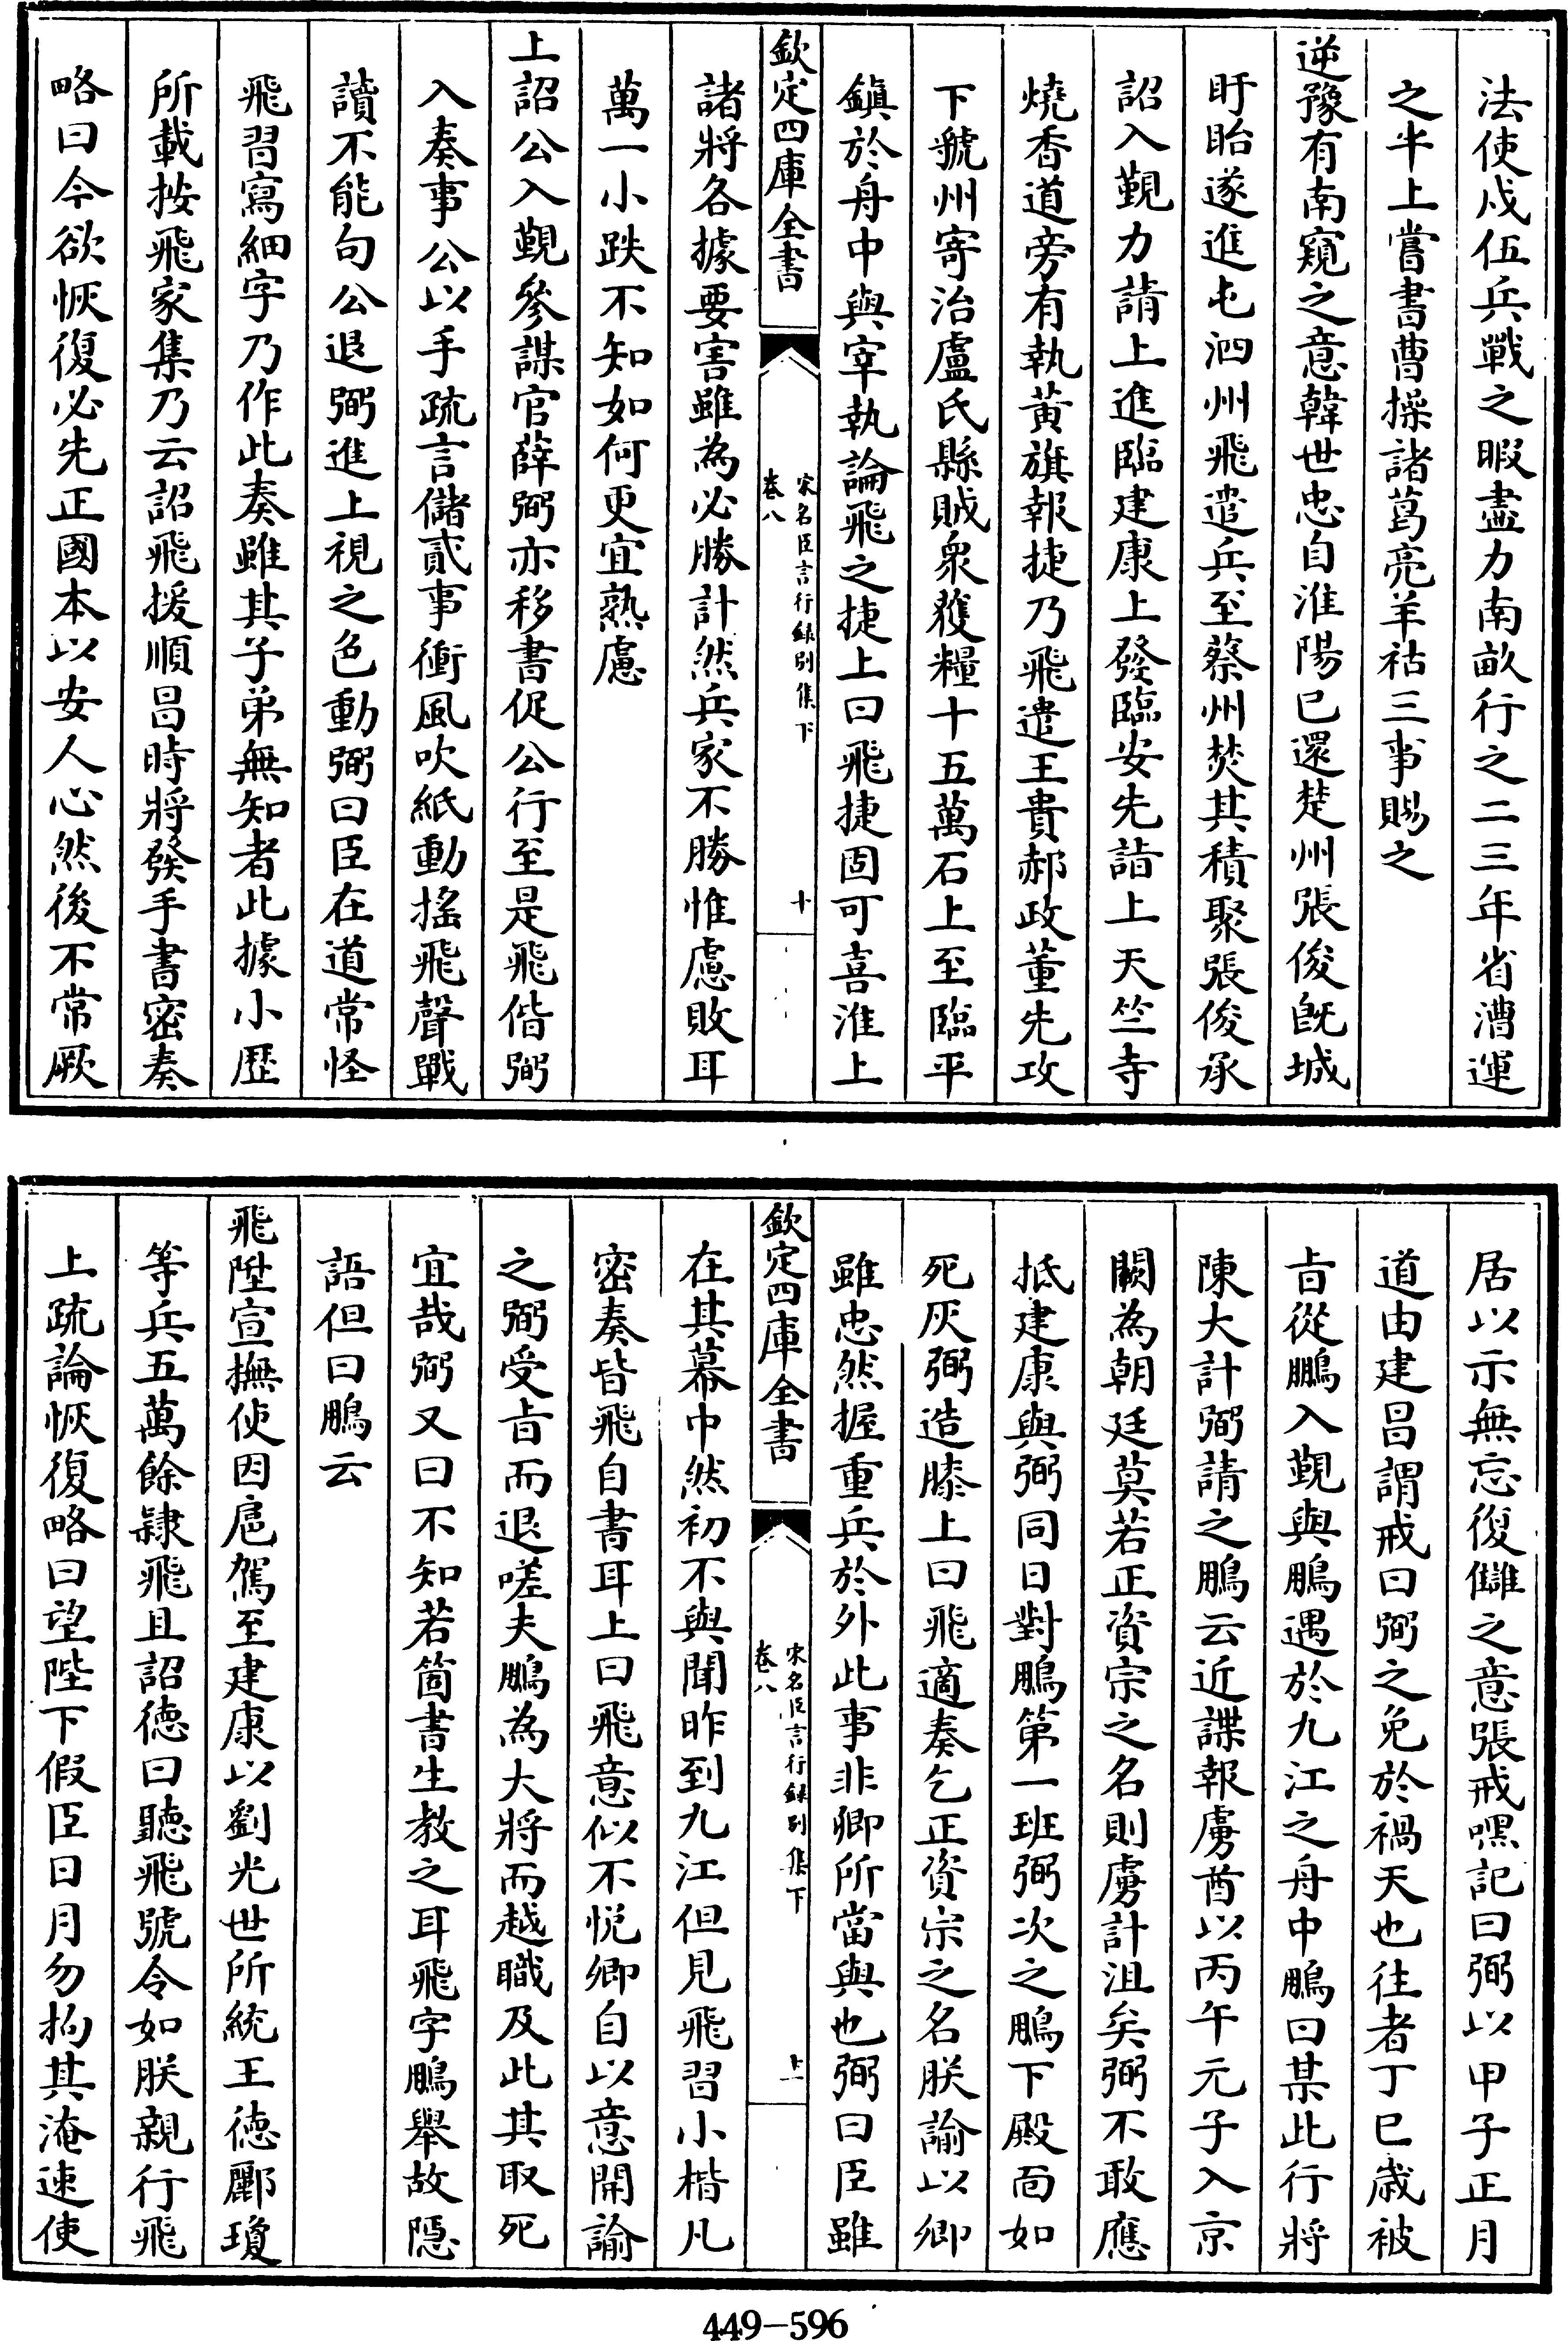 法使戍伍兵戰之暇盡力南畝行之二三年省漕運
之半上嘗書曹操諸葛亮羊祜三事賜之
逆豫有南窺之意韓世忠自淮陽已還楚州張俊旣城
盱眙遂進屯泗州飛遣兵至蔡州焚其積聚張俊承
詔入覲力請上進臨建康上發臨安先詣上天竺寺
燒香道旁有執黃旗報捷乃飛遣王貴郝政董先攻
下虢州寄治盧氏縣賊衆獲糧十五萬石上至臨平
鎮於舟中與宰執論飛之捷上曰飛捷固可喜淮上
欽定四庫全書
宋名臣言行録別集下
卷八
十
諸將各據要害雖為必勝計然兵家不勝惟慮敗耳
萬一小跌不知如何更宜熟慮
上詔公入覲參謀官薛弼亦移書促公行至是飛偕弼
入奏事公以手疏言儲貳事衝風吹紙動搖飛聲戰
讀不能句公退弼進上視之色動弼曰臣在道常怪
飛習寫細字乃作此奏雖其子弟無知者此據小歷
所載按飛家集乃云詔飛援順昌時將發手書密奏
略曰今欲恢復必先正國本以安人心然後不常厥
居以示無忘復讎之意張戒嘿記曰弼以甲子正月
道由建昌謂戒曰弼之免於禍天也往者丁巳歲被
旨從鵬入覲與鵬遇於九江之舟中鵬曰某此行將
陳大計弼請之鵬云近諜報虜酋以丙午元子入京
闕為朝廷莫若正資宗之名則虜計沮矣弼不敢應
抵建康與弼同日對鵬第一班弼次之鵬下殿面如
死灰弼造膝上曰飛適奏乞正資宗之名朕諭以卿
雖忠然握重兵於外此事非卿所當與也弼曰臣雖
欽定四庫全書
宋名臣言行録別集下
卷八
十一
在其幕中然初不與聞昨到九江但見飛習小楷凡
密奏皆飛自書耳上曰飛意似不悅卿自以意開諭
之弼受旨而退嗟夫鵬為大將而越職及此其取死
宜哉弼又曰不知若箇書生教之耳飛字鵬舉故隱
語但曰鵬云
飛陞宣撫使因扈駕至建康以劉光世所統王德酈瓊
等兵五萬餘隸飛且詔德曰聽飛號令如朕親行飛
上疏論恢復略曰望陛下假臣日月勿拘其淹速使
449-596